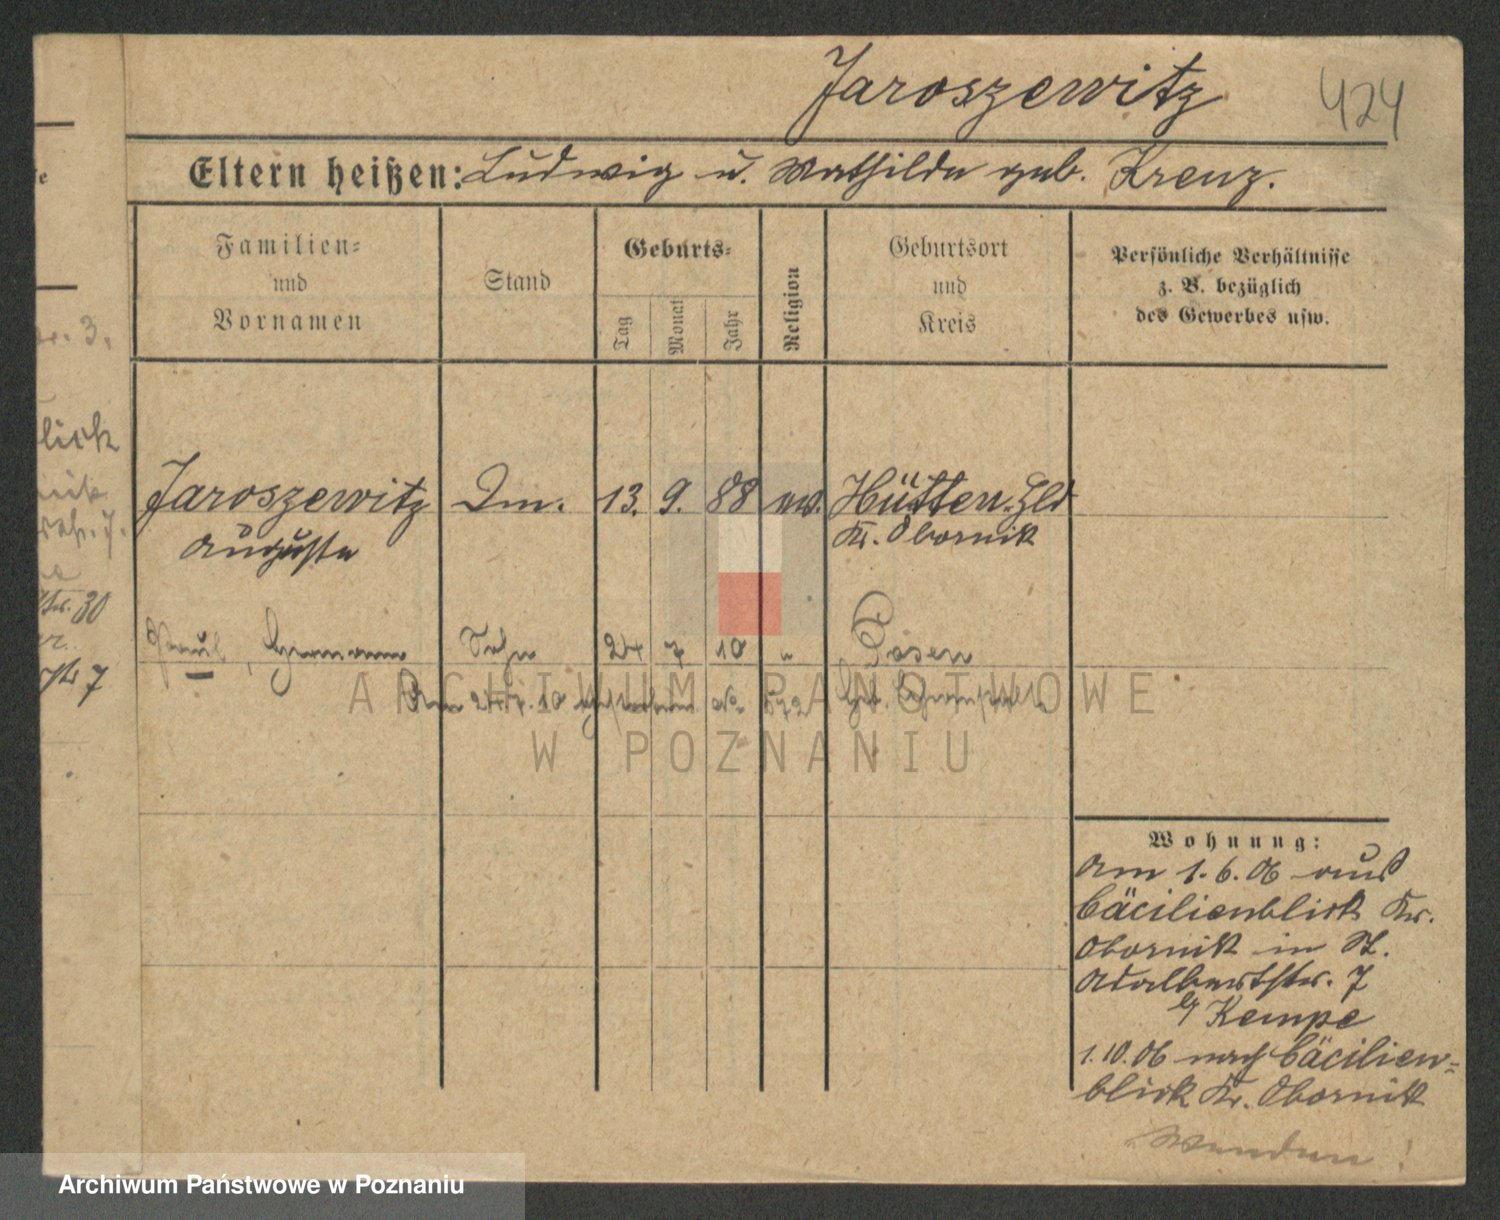 Jaroszewitz 424
Eltern heißen: Ludwig u. Mathilde geb. Krenz.
Familien- und Vornamen
Stand
Geburts-
Tag
Monat
Jahr
Religion
Geburtsort und Kreis
Persönliche Verhältnisse
z. B. bezüglich
des Gewerbes usw.
Jaroszewitz Dm. 13. 9. 88 ev. Hütten-Hld
Auguste Kr. Obornik
Paul, Hermann Sohn 24 7 10 " Posen
ARCHIWUM PAŃSTWOWE
W POZNANIU
Wohnung:
Am 1.6.06 aus
Cäcilienblick Kr.
Obornik in St.
Adalbertstr. 7
b/ Kempe
1.10.06 nach Cäcilien-
blick Kr. Obornik
Wenden!
lick
str. 30
7
Archiwum Państwowe w Poznaniu